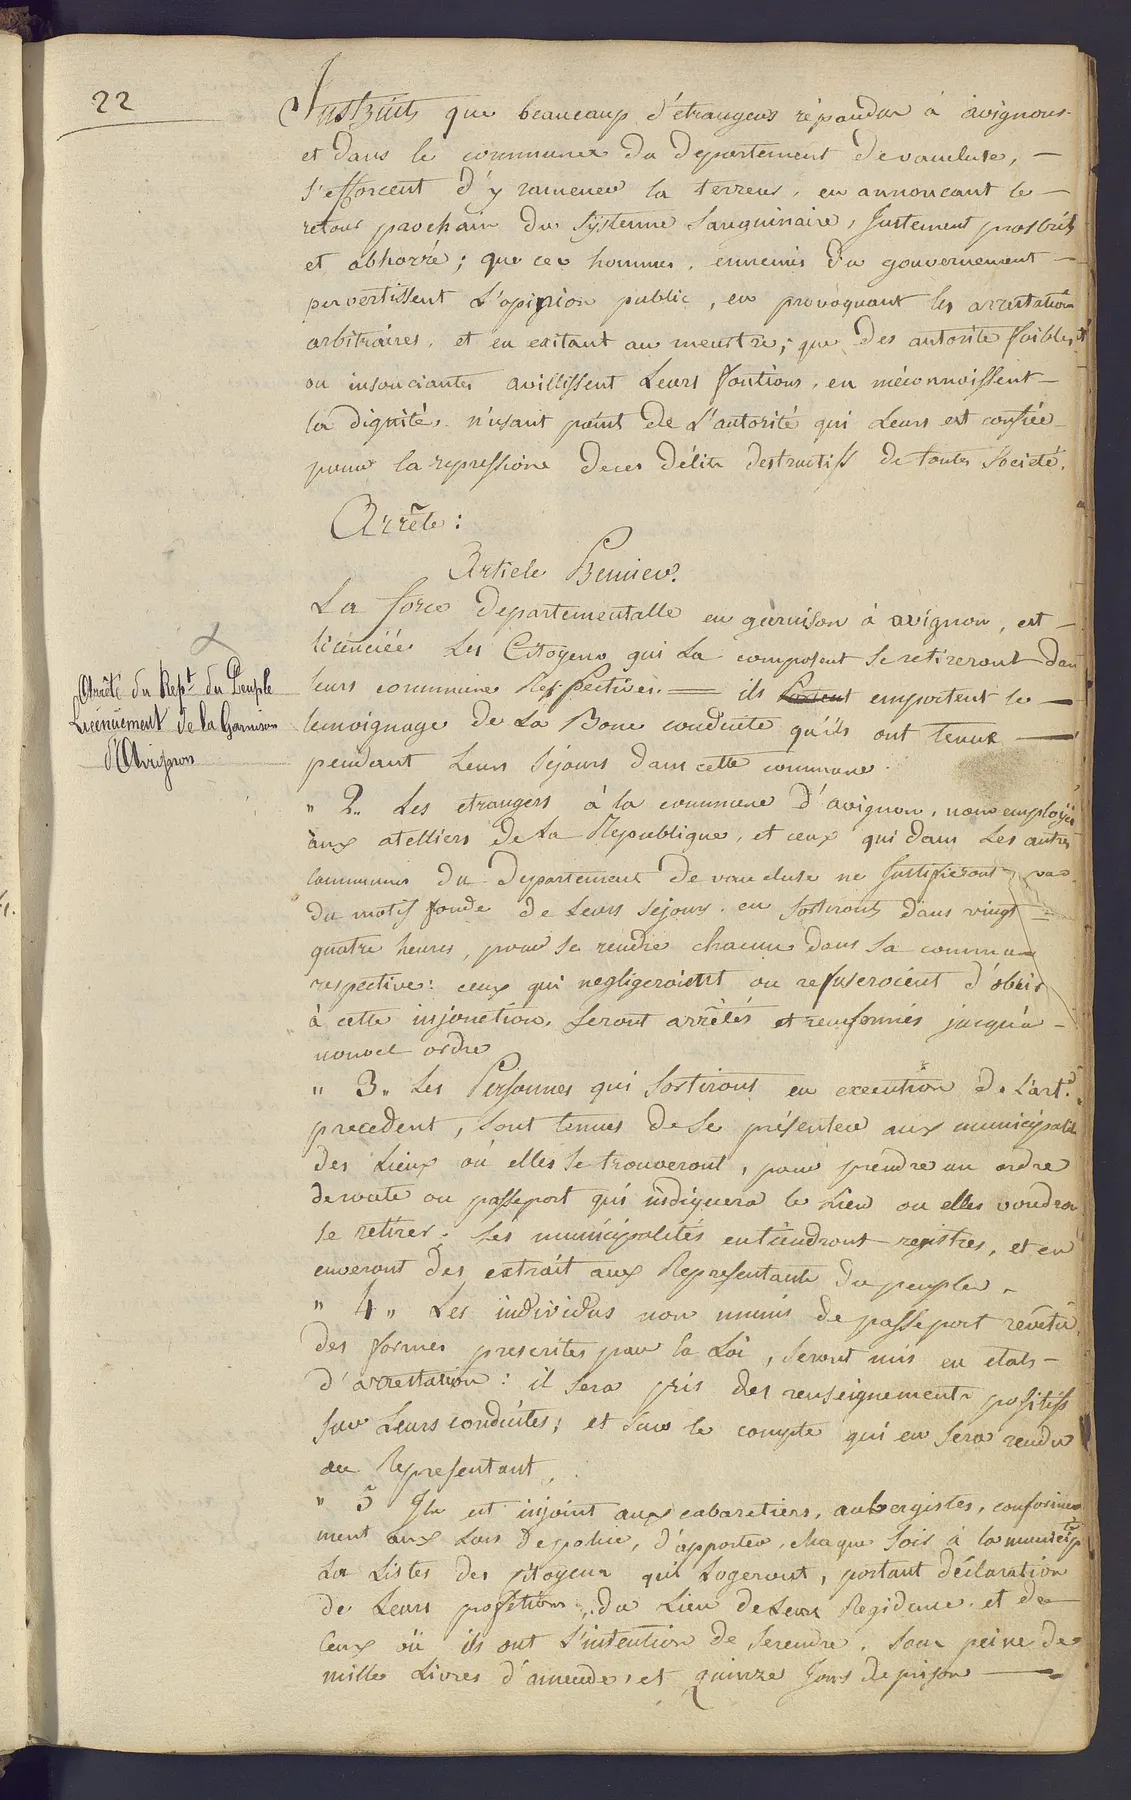 22
Instruits que beaucoup d'étrangers répandus à avignon
et dans le communes du departement de vaucluse, —
s'efforcent d'y ramener la terreur, en annoncant le —
retour prochain du systemme sanguinaire, justement proscrits
et abhorré; que ces hommes, ennemis du gouvernement —
pervertissent l'opinion public, en provoquant les arrestations
arbitraires, et en exitant au meurtre; que des autorité foibles et
ou insouciantes avillissent leurs fontions, en méconnoissent —
la dignité, n'usant point de l'autorité qui leurs est confiée
pour la repressione de ces délits destructifs de toutes société.
Arrête:
Article Premier.
La force departementalle en garnison à avignon, est —
licenciée Les Citoyens qui la composent se retireront dans
leurs commune Respectives. — ils portent emportent le —
temoignage de la Bone conduite qu'ils ont tenue —
pendant leurs séjours dans cette commune.
Arrêté du Rept. du Peuple
Licenciement de la Garnison
d'Avignon
" 2.. Les etrangers à la commune d'avignon, non employés
aux atelliers de la Republique, et ceux qui dans les autres
communes du Departement de vaucluse ne justifieront pas
du motif fondé de leurs séjours, en sortiront dans vingt =
quatre heures, pour se rendre chacun dans sa commune
respective: ceux qui negligeroient ou refuseroient d'obéir
à cette injonction, seront arrêtés et renfermés jusqu'à —
nouvel ordre
" 3.. Les Personnes qui sortiront en execution de l'art.
precedent, sont tenues de se présenter aux municipalité
des lieux où elles se trouveront, pour prendre un ordre
de route ou passeport qui indiquera le lieu ou elles voudron
se retirer. Les municipalités en tiendront registres, et en
enveront des extrait aux Representants du peuple.
" 4.. Les individus non munis de passeport revêtu
des formes prescrites par la Loi, seront mis en etats —
d'arrestation: il sera pris des renseignements positifs
sur leurs conduites; et sur le compte qui en sera rendu
au Representant.
" 5 Ils est injoint aux cabaretiers, aubergistes, conformem
ment aux Lois de police, d'apporter, chaque soir à la municip té
La Listes des citoyens qu'il logeront, portant déclaration
de leurs profetions, du lieu de leur Residence, et de
Ceux où ils ont l'intention de se rendre, sous peine de
mille Livres d'amende, et quinze Jours de prison —